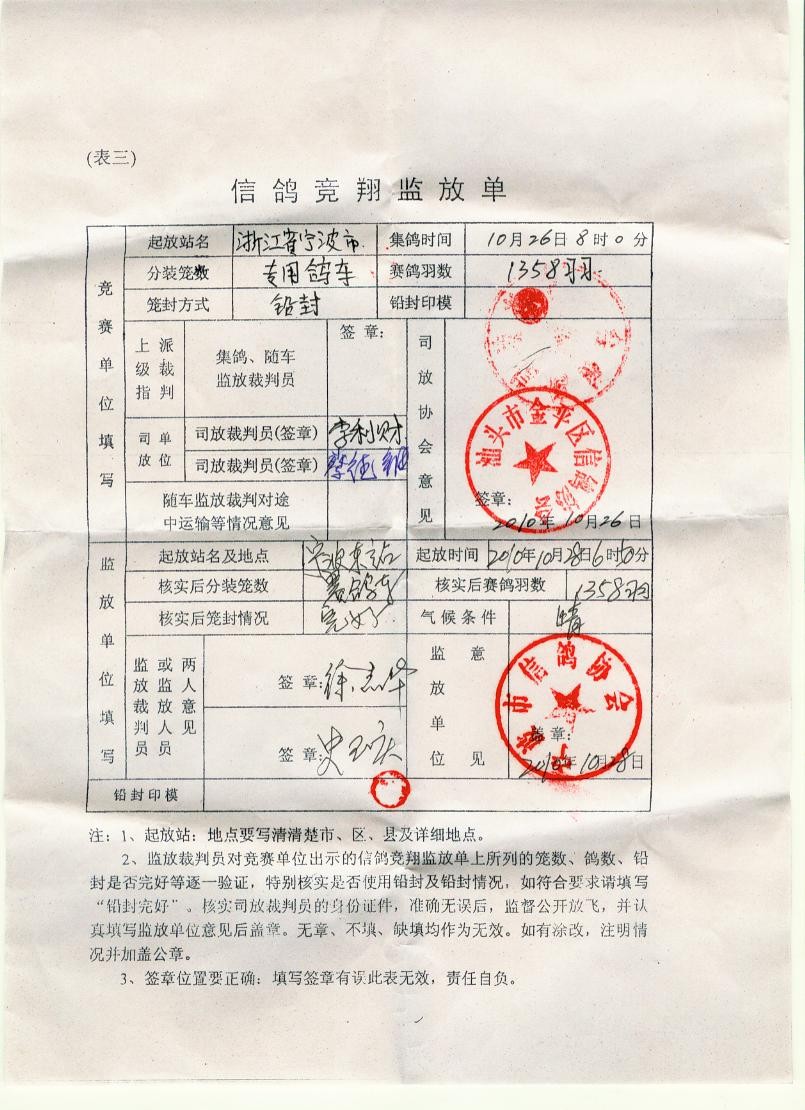 (表三)
信鸽竞翔监放单
竞赛单位填写
起放站名 浙江省宁波市 集鸽时间 10月26日8时0分
分装笼数 专用鸽车 赛鸽羽数 1358羽
笼封方式 铅封 铅封印模
上级指派裁判 集鸽、随车监放裁判员 签章:
司放单位 司放裁判员(签章) 李利财
司放裁判员(签章)
随车监放裁判对途中运输等情况意见
司放协会意见 签章: 2010年10月26日
汕头市金平区信鸽协会
监放单位填写
起放站名及地点 宁波东站 起放时间 2010年10月28日6时50分
核实后分装笼数 专鸽车 核实后赛鸽羽数 1358羽
核实后笼封情况 完好 气候条件 晴
监放裁判员或监放人员两人意见 签章: 徐志华
签章:
监放单位意见 盖章: 2010年10月28日
市信鸽协会
铅封印模
注:1、起放站:地点要写清清楚市、区、县及详细地点。
2、监放裁判员对竞赛单位出示的信鸽竞翔监放单上所列的笼数、鸽数、铅
封是否完好等逐一验证,特别核实是否使用铅封及铅封情况,如符合要求请填写
“铅封完好”。核实司放裁判员的身份证件,准确无误后,监督公开放飞,并认
真填写监放单位意见后盖章。无章、不填、缺填均作为无效。如有涂改,注明情
况并加盖公章。
3、签章位置要正确:填写签章有误此表无效,责任自负。